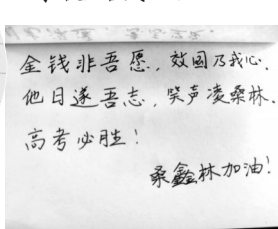 金钱非吾愿，效国乃我心．
他日遂吾志，笑声凌桑林．
高考必胜！
桑鑫林加油！